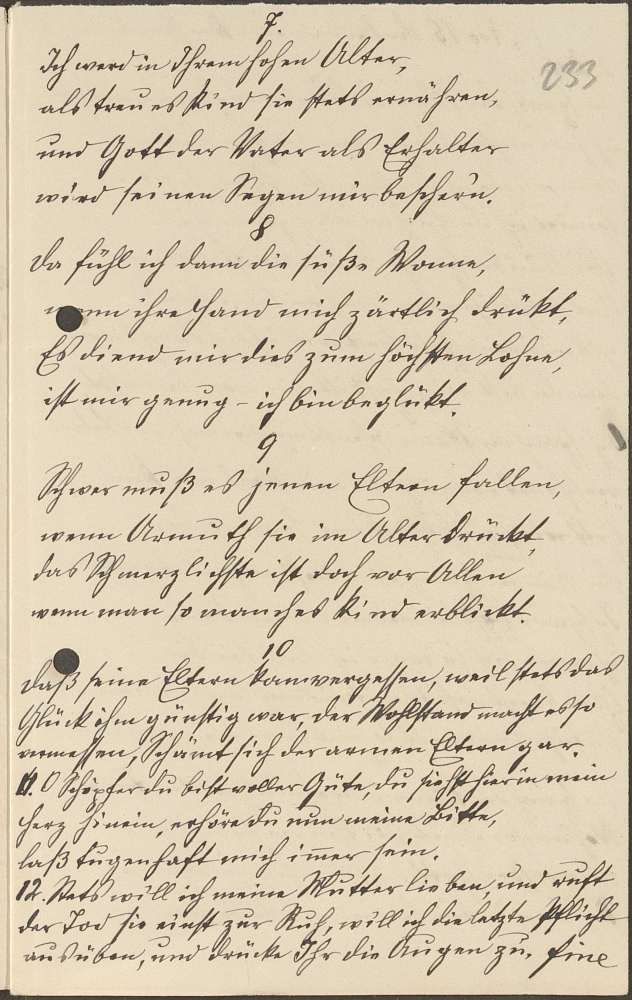 7.
233
Ich werd in Ihrem hohen Alter,
als treues Kind sie stets ernähren,
und Gott der Vater als Erhalter
wird seinen Segen mir bescher'n.
8
Da fühl ich dann die süße Wonne,
wenn ihre Hand mich zärtlich drükt,
Es diend mir dies zum höchsten Lohne,
ist mir genug - ich bin beglükt.
9
Schwer muß es jenen Eltern fallen,
wenn Armuth sie im Alter drückt,
das Schmerzlichste ist doch vor Allen
wenn man so manches Kind erblickt.
10
Daß seine Eltern kann vergessen, weil stets das
Glück ihm günstig war, der Wohlstand macht es so
vermessen, Schämt sich der armen Eltern gar.
11. O Schöpfer du bist voller Güte, du siehst hier in mein
Herz hinein, erhöre du nun meine Bitte,
laß tugenhaft mich im̅er sein.
12. Stets will ich meine Mutter lieben, und ruft
der Tod sie einst zur Ruh, will ich die letzte Pflicht
ausüben, und drücke Ihr die Augen zu. fine